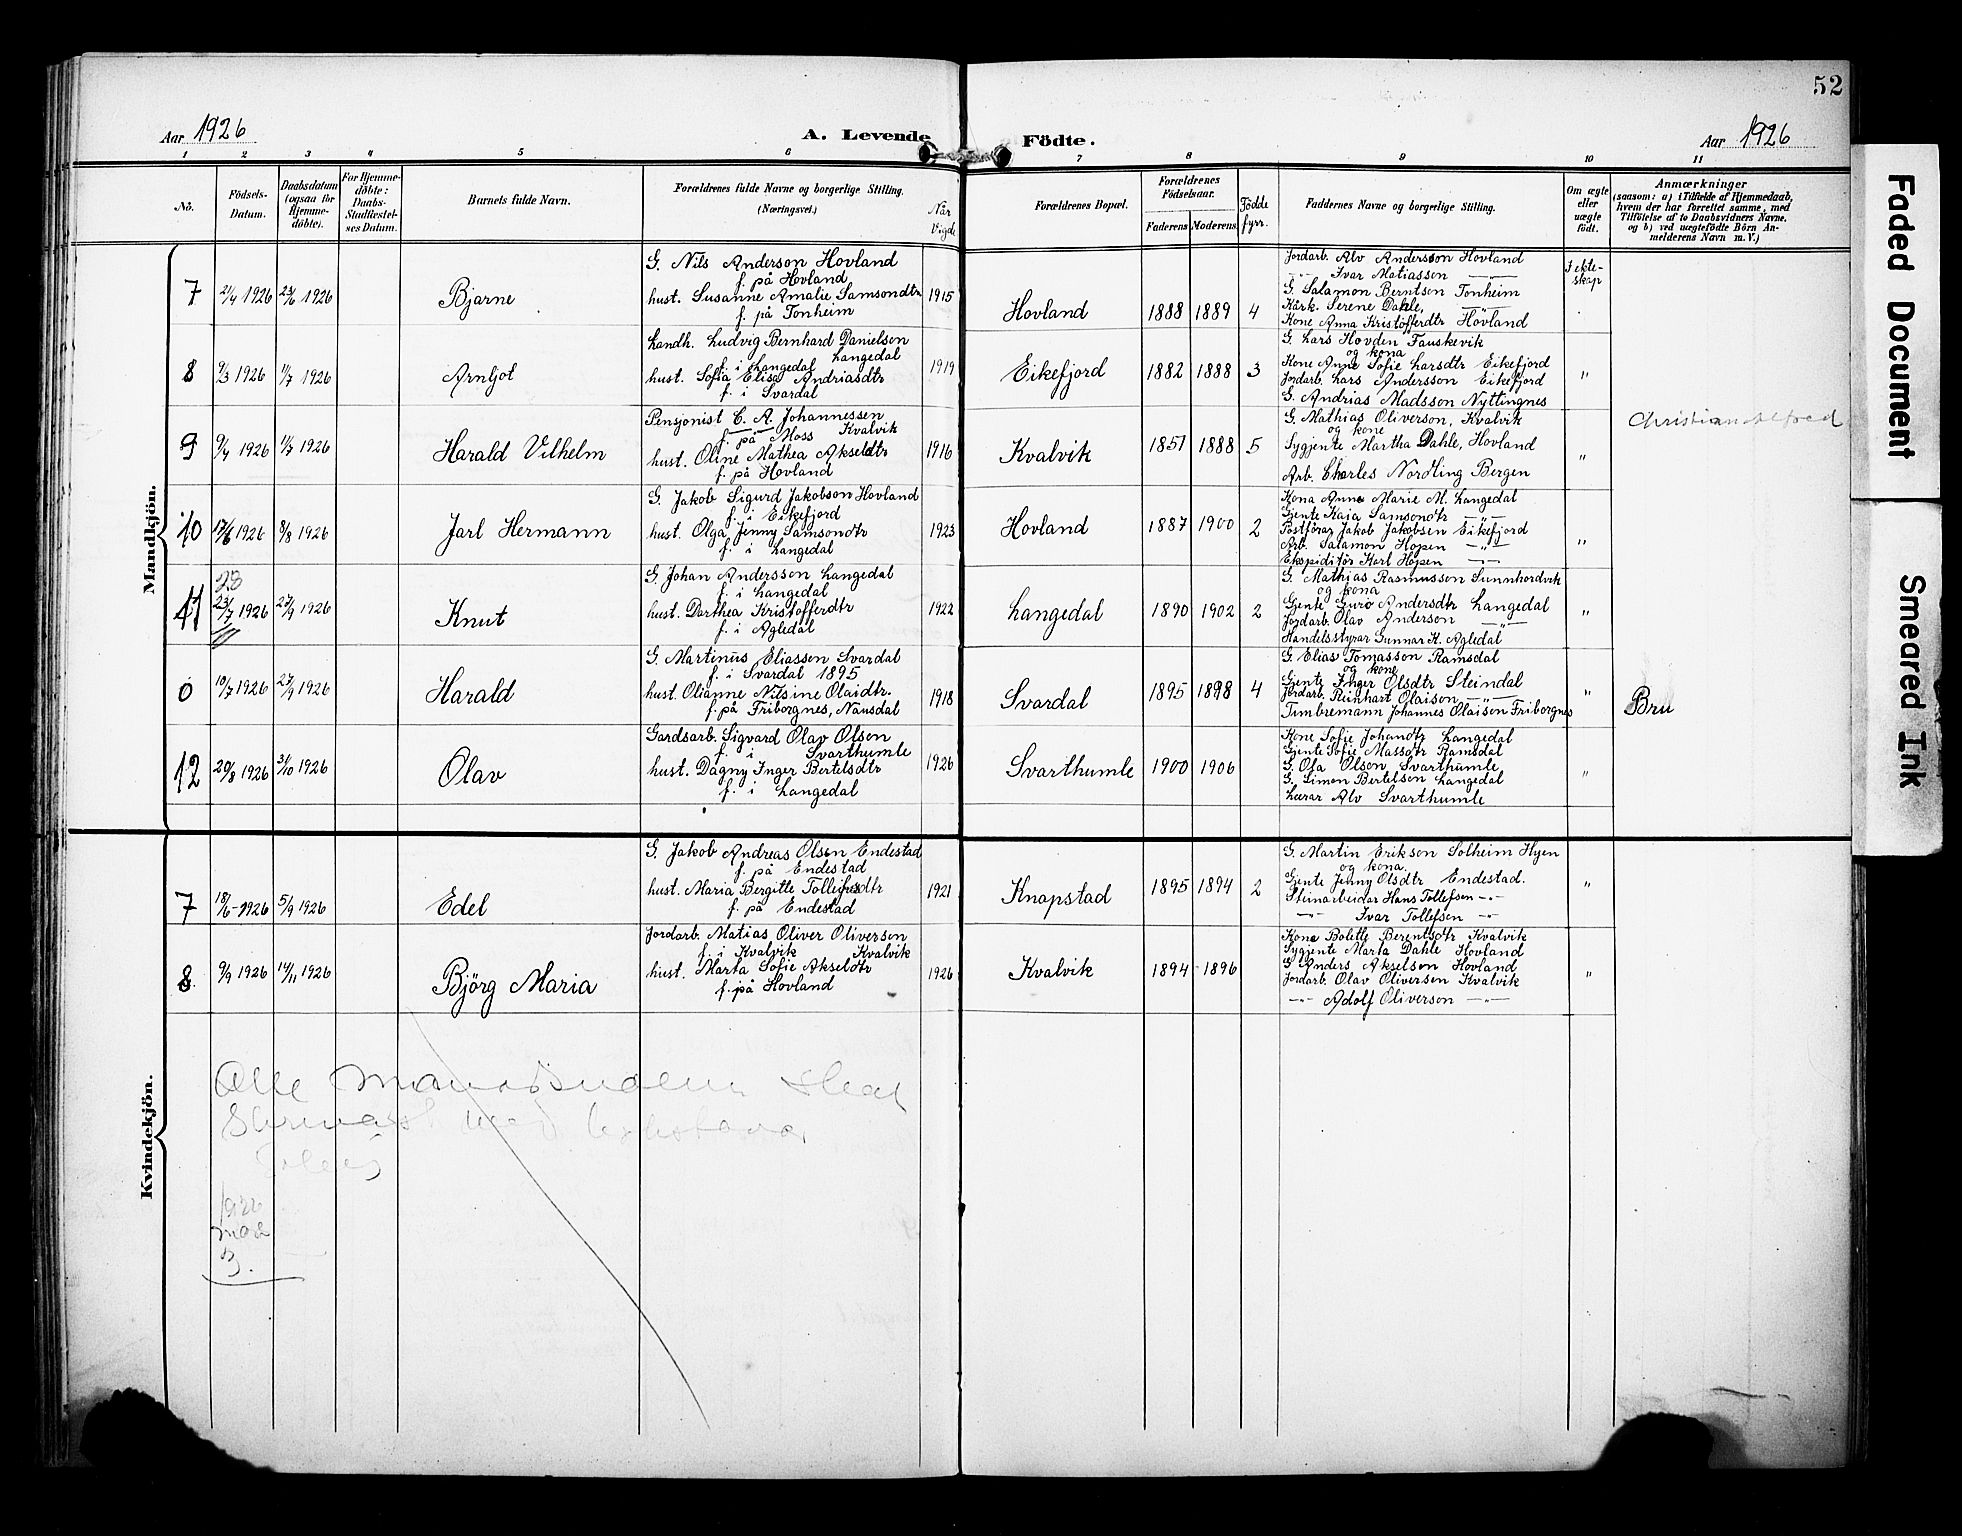 52
Aar 1926
A. Levende Födte.
Aar 1926
1 2 3 4 5 6 7 8 9 10 11
No.
Födsels-Datum.
Daabsdatum (ogsaa for Hjemme-döbte).
For Hjemme-döbte: Daabs-Stadfæstel-ses Datum.
Barnets fulde Navn.
Forældrenes fulde Navne og borgerlige Stilling. (Næringsvei.)
Når Vigde
Forældrenes Bopæl.
Forældrenes Födselsaar.
Faderens Moderens
Födde fyrr.
Faddernes Navne og borgerlige Stilling.
Om ægte eller uægte födt.
Anmærkninger
(saasom: a) i Tilfælde af Hjemmedaab, hvem der har forrettet samme, med Tilföielse af to Daabsvidners Navne, og b) ved uægtefödte Börn An-melderens Navn m. V.)
Mandkjön.
7 21/4 1926 23/6 1926 Bjarne
G. Nils Anderson Hovland
f. på Hovland
hust. Susanne Amalie Samsondtr
f. på Tonheim
1915 Hovland 1888 1889 4
Jordarb. Alv Andersson Hovland
—"— Ivar Matiasson —"—
G. Salamon Berntsen Tonheim
Kårk. Serene Dahle,
Kone Anna Kristofferdtr Hovland
I ekte-skap
8 9/3 1926 11/7 1926 Arnljot
Landh. Ludvig Bernhard Danielsen
f. i Langedal Langedal
hust. Sofia Elisa Andriasdtr
f. i Svardal
1919 Eikefjord 1882 1888 3
G. Lars Hovden Fauskevik
og kona
Kone Anne Sofie Larsdtr Eikefjord
Jordarb. Lars Andersson Eikefjord
G. Andrias Madsson Nyttingnes
"
9 9/4 1926 11/7 1926 Harald Vilhelm
Pensjonist C. A. Johannessen
f. på Moss Kvalvik
hust. Oline Mathea Akseldtr
f. på Hovland
1916 Kvalvik 1851 1888 5
G. Mathias Oliverson, Kvalvik
og kone
Sygjente Martha Dahle, Hovland
Arb. Charles Nordling Bergen
"
Christian Alfred
10 17/6 1926 8/8 1926 Jarl Hermann
G. Jakob Sigurd Jakobson Hovland
f. i Eikefjord
hust. Olga Jenny Samsondtr
f. i Langedal
1923 Hovland 1887 1900 2
Kona Anne Marie M. Langedal
Gjente Kaia Samsondtr —"—
Postförar Jakob Jakobsen Eikefjord
Arb. Salamon Hopen —"—
Ekspiditör Karl Hopen —"—
"
11 28 23/7 1926 27/9 1926 Knut
G. Johan Andersson Langedal
f. i Langedal
hust. Darthea Kristofferdtr
f. i Agledal
1922 Langedal 1890 1902 2
G. Mathias Rasmusson Sunnhordvik
og kona
Gjente Guro Andersdtr Langedal
Jordarb. Olav Anderson —"—
Handelsstyrar Gunnar K. Agledal
"
0 10/7 1926 27/9 1926 Harald
G. Martinus Eliassen Svardal
f. i Svardal 1895
hust. Olianne Nilsine Olaidtr.
f. på Friborgnes, Naustdal
1918 Svardal 1895 1898 4
G. Elias Tomasson Ramsdal
og kone
Gjente Inger Olsdtr Steindal
Jordarb. Reinhart Olaison —"—
Timbremann Johannes Olaison Friborgnes
"
Bru
12 20/8 1926 31/10 1926 Olav
Gardsarb. Sigvard Olav Olsen
f. i Svarthumle
hust. Dagny Inger Bertelsdtr
f. i Langedal
1926 Svarthumle 1900 1906
Kone Sofie Johandtr Langedal
Gjente Sofie Massdtr Ramsdal
G. Ola Olson Svarthumle
G. Simon Bertelsen Langedal
Lærar Alv Svarthumle
"
Kvindekjön.
7 18/6 - 1926 5/9 1926 Edel
G. Jakob Andreas Olsen Endestad
f. på Endestad
hust. Maria Bergitte Tollefsdtr
f. på Endestad
1921 Knapstad 1895 1894 2
G. Martin Erikson Solheim Hyen
og kona.
Gjente Jenny Olsdtr Endestad.
Steinarbeidar Hans Tollefsen —"—
—"— Ivar Tollefsen —"—
"
8 9/9 1926 14/11 1926 Björg Maria
Jordarb. Matias Oliver Oliversen
f. i Kvalvik Kvalvik
hust. Marta Sofie Akseldtr
f. på Hovland
1926 Kvalvik 1894 - 1896
Kone Bolette Berentsdtr Kvalvik
Sygjente Marta Dahle Hovland
G Anders Akselson Hovland
Jordarb. Olav Oliversen Kvalvik
—"— Adolf Oliverson —"—
"
Alle
1926
3.
Faded Document
Smeared Ink